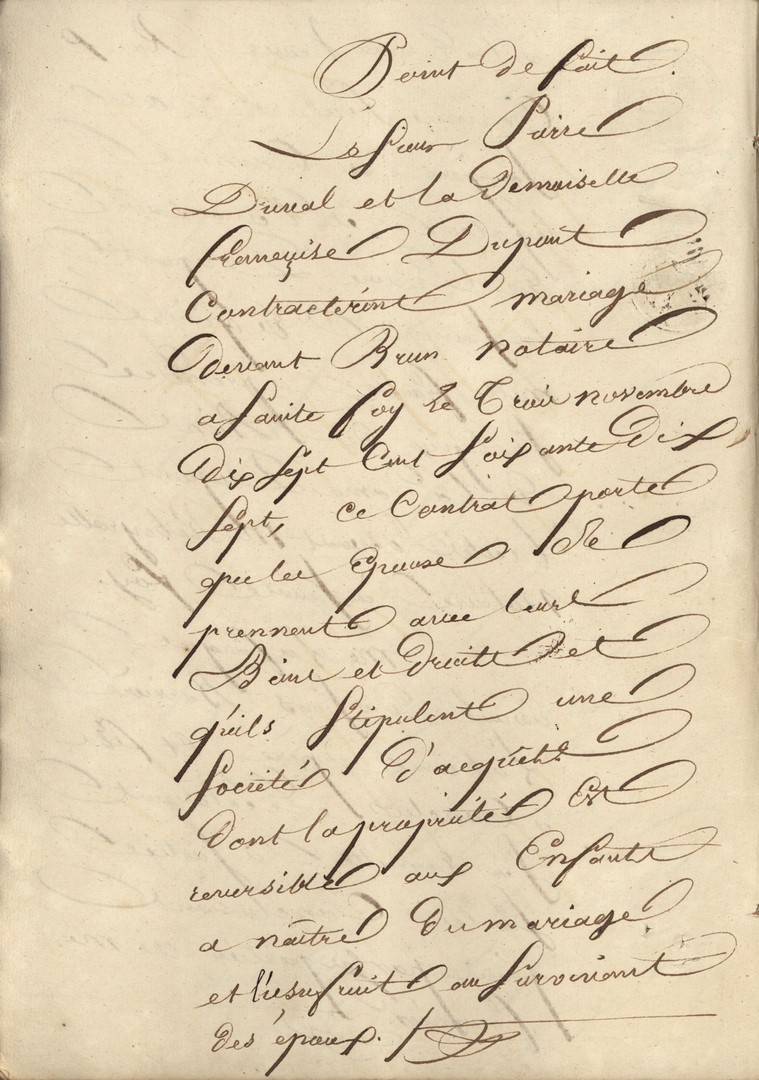 Point de fait.
Le sieur Pierre
Duval et la Demoiselle
françoise Dupont
Contractèrent mariage
devant Brun notaire
a Sainte foy le Trois novembre
dix sept Cent soixante dix
sept, ce Contrat porte
que les Epoux se
prennent avec leurs
Biens et droits et
qu'ils stipulent une
société d'acquêts
dont la propriété Est
reversible aux Enfants
a naître du mariage
et l'usufruit au survivant
des époux.